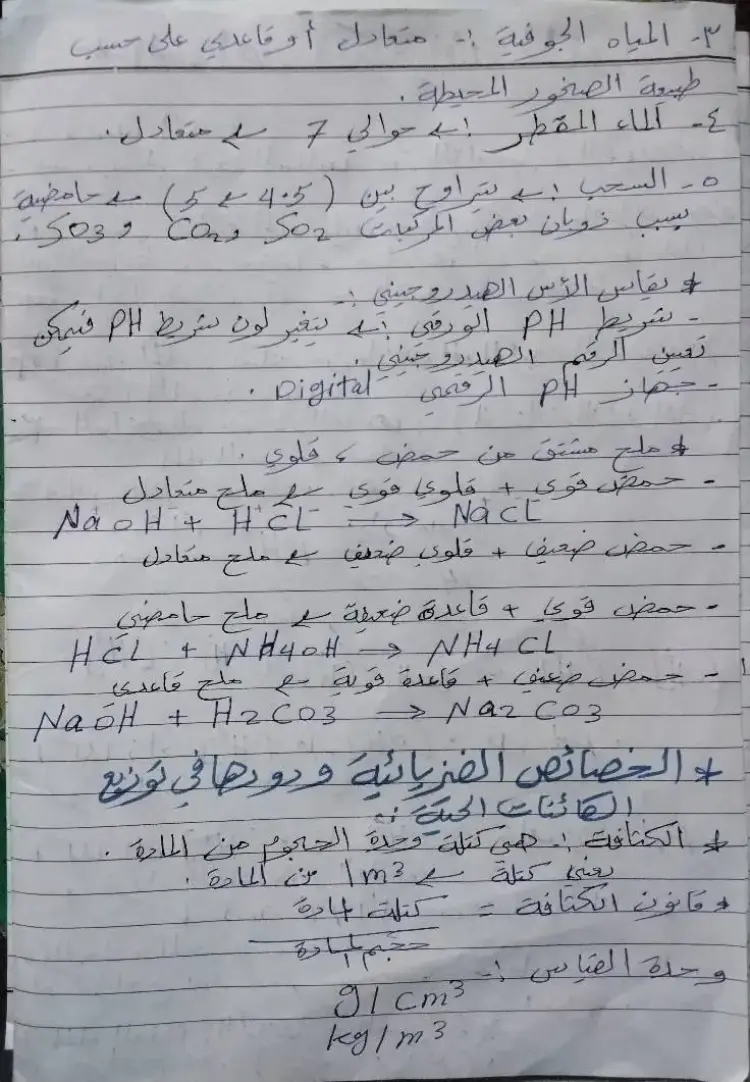 ٣- المياه الجوفية :- متعادل أو قاعدي على حسب
طبيعة الصخور المحيطة.
٤- الماء المقطر :← حوالي 7 ← متعادل.
٥- السحب :← يتراوح بين (4.5 ← 5) ← حامضية
بسبب ذوبان بعض المركبات SO2 و CO2 و SO3.
* يقاس الأس الهيدروجيني :-
- شريط PH الورقي :← يتغير لون شريط PH فيمكن
تعيين الرقم الهيدروجيني.
- جهاز PH الرقمي Digital.
* ملح مشتق من حمض، قلوي.
- حمض قوي + قلوي قوي ← ملح متعادل
NaOH + HCL → NaCL
- حمض ضعيف + قلوي ضعيف ← ملح متعادل
- حمض قوي + قاعدة ضعيفة ← ملح حامضي
HCL + NH4OH → NH4CL
- حمض ضعيف + قاعدة قوية ← ملح قاعدي
NaOH + H2CO3 → Na2CO3
* الخصائص الفزيائية ودورها في توزيع
الكائنات الحية :-
* الكثافة :- هي كتلة وحدة الحجوم من المادة.
يعني كتلة ← 1m³ من المادة.
* قانون الكثافة = كتلة المادة
حجم المادة
وحدة القياس :-
g/cm³
kg/m³